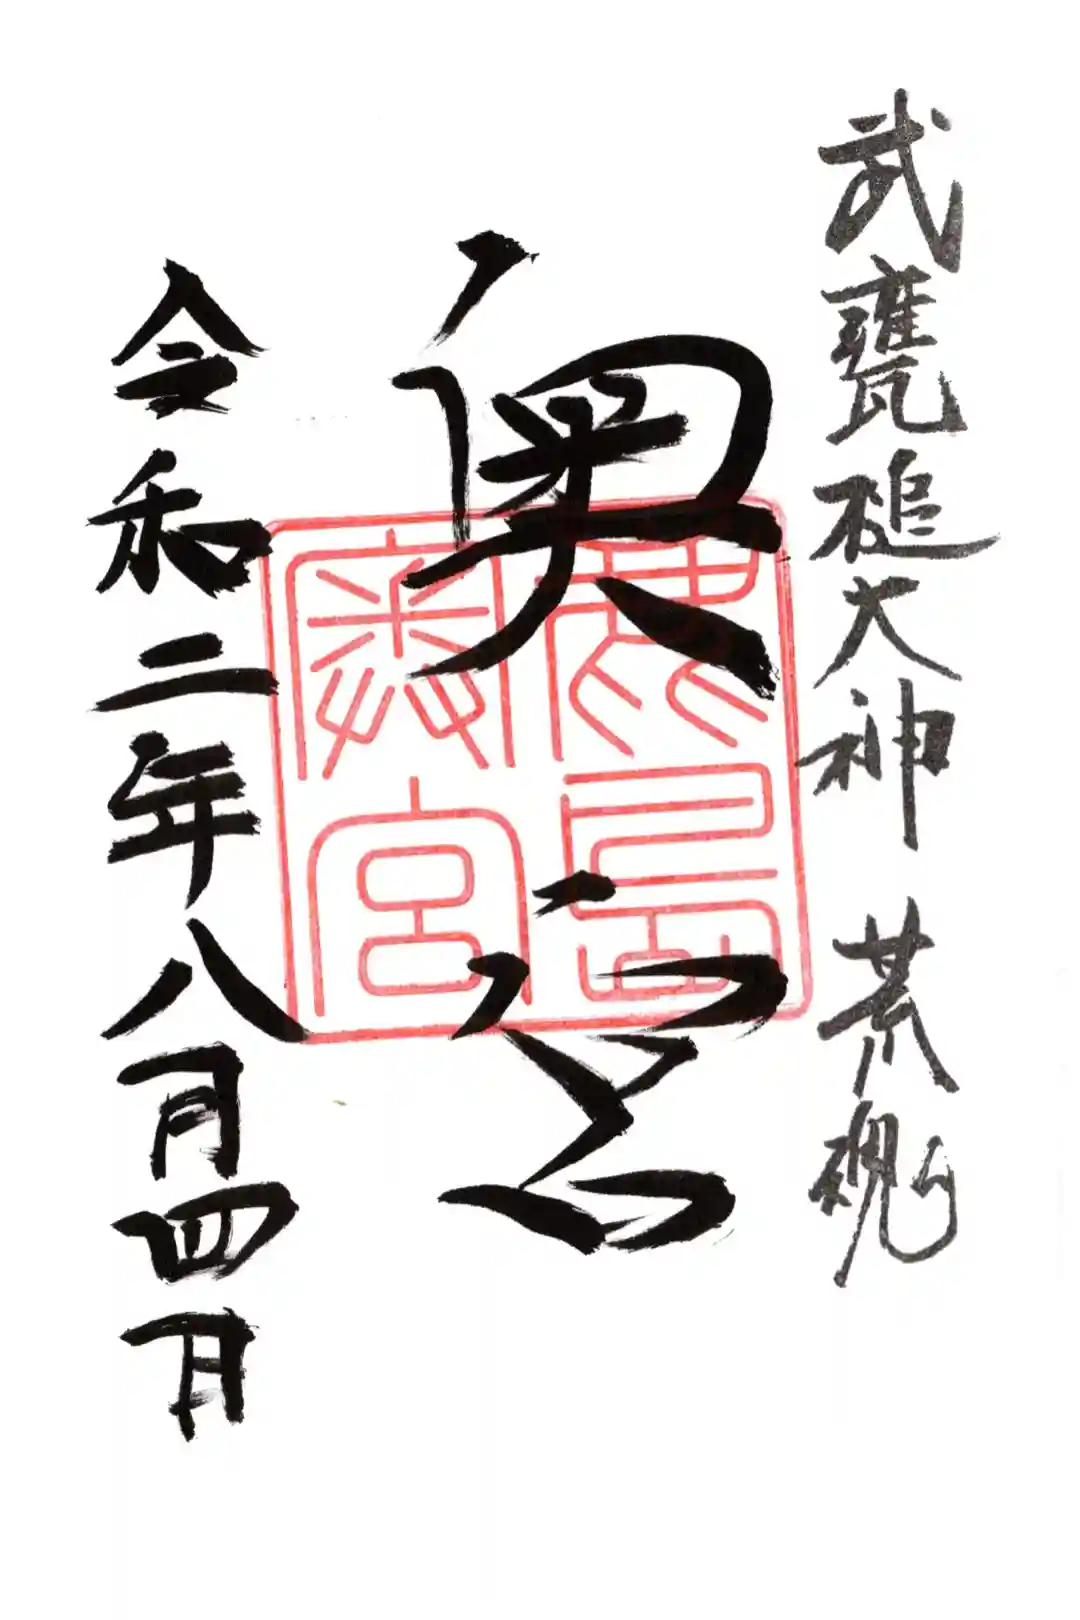 武甕槌大神 荒魂
奥宮
鹿島
奥宮
令和二年八月四日